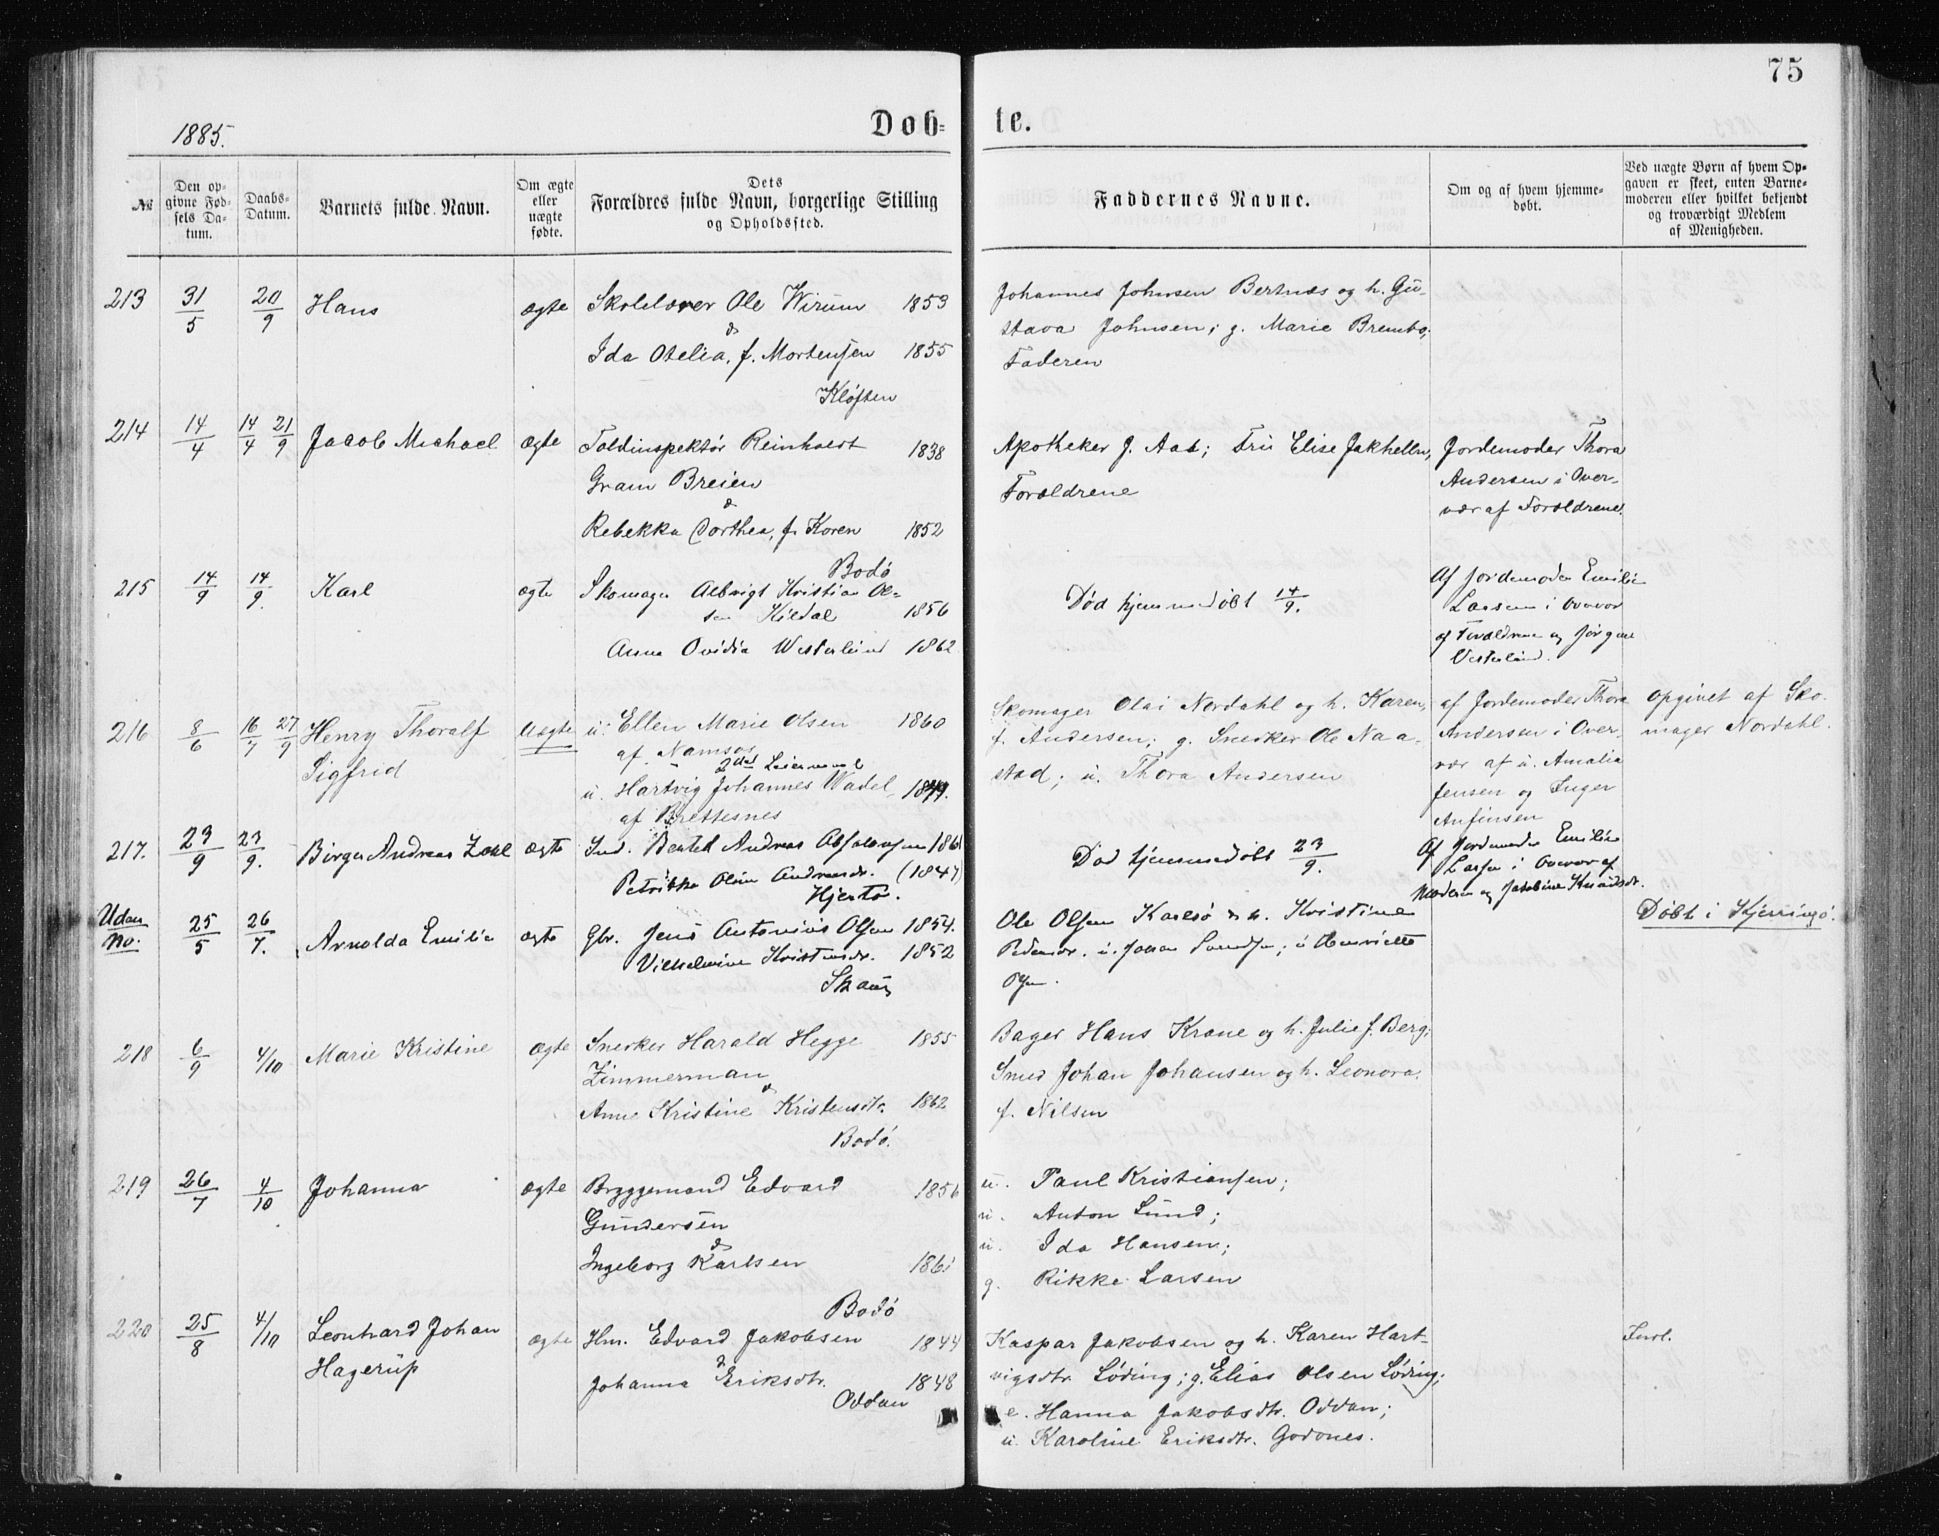 75
1885.
Døb=
te.
№
Den op-
givne Fød-
sels Da-
tum.
Daabs-
Datum.
Barnets fulde Navn.
Om ægte
eller
uægte
fødte.
Dets
Forældres fulde Navn, borgerlige Stilling
og Opholdssted.
Faddernes Navne.
Om og af hvem hjemme-
døbt.
Ved uægte Børn af hvem Op-
gaven er skeet, enten Barne-
moderen eller hvilket bekjendt
og troværdigt Medlem
af Menigheden.
213 31/5 20/9 Hans ægte Skolelærer Ole Wirum 1853
&
Ida Otelia, f. Mortensen 1855
Kløften
Johannes Johnsen Bertnæs og h. Gu-
stava Johnsen; g. Marie Brembo,
Faderen
214 14/4 14/4 21/9 Jacob Michael ægte Toldinspektør Reinholdt 1838
Gram Breien
&
Rebekka Dorthea, f. Koren 1852
Bodø
Apotheker J. Aas; Fru Elise Jakhelln,
Forældrene
Jordemoder Thora
Andersen i Over-
vær af Forældrene.
215 14/9 14/9. Karl ægte Skomager Albrigt Kristian Ol-
sen Kildal 1856
Anna Ovidia Westerlund 1862
Død hjemmedøbt 14/9.
Af Jordemoder Emilie
Larsen i Overvær
af Forældrene og Jørgine
Vesterlund.
216 8/6 16/7 27/9 Henry Thoralf Uægte u. Ellen Marie Olsen 1860
Sigfrid
af Namsos
2det Leiermaal
u. Hartvig Johannes Wadel, 1844.
af Brettesnes
Skomager Olai Nordahl og h. Karen,
f. Andersen; g. Snedker Ole Naa-
stad; u. Thora Andersen
af Jordemoder Thora
Andersen i Over-
vær af u. Amalia
Jensen og Inger
Anfinsen
opgivet af Sko-
mager Nordahl.
217. 23/9 23/9. Birger Andreas Zahl ægte Ind. Bertel Andreas Absalonsen 1861
Petrikke Oline Andreasdr. (1847)
Hjertø.
Død hjemmedøbt 23/9.
Af Jordemoder Emilie
Larsen i Overvær af
Moderen og Jakobine Knudsdr.
Uden
No. 25/5 26/7. Arnolda Emilie ægte Gbr. Jens Antonius Olsen 1854.
Vilhelmine Kristensdr. 1852
Skaug
Ole Olsen Karlsø & h. Kristine
Pedersdr. u. Johan Svendsen; u Henriette
Olsen.
Døbt i Kjerringø.
218 6/9 4/10 Marie Kristine ægte Snedker Harald Hegge 1855
Zimmerman
&
Anne Kristine Kristensdtr. 1862
Bodø.
Bager Hans Krane og h. Julie f. Berg;
Smed Johan Johansen og h. Leonora.
f. Nilsen
219 26/7 4/10 Johanna ægte Bryggemand Edvard 1856
Gundersen
&
Ingeborg Karlsen 1861
Bodø
u. Paul Kristiansen;
u. Anton Lund;
u. Ida Hansen;
g. Rikke Larsen
220 25/8 4/10 Leonhard Johan ægte Hm. Edvard Jakobsen 1844
Hagerup
&
Johanna Eriksdtr. 1848
Oddan
Kaspar Jakobsen og h. Karen Hart-
vigsdtr Løding; g. Elias Olsen Løding;
e. Hanna Jakobsdtr. Oddan;
u. Karoline Eriksdtr. Godønes.
Indl.